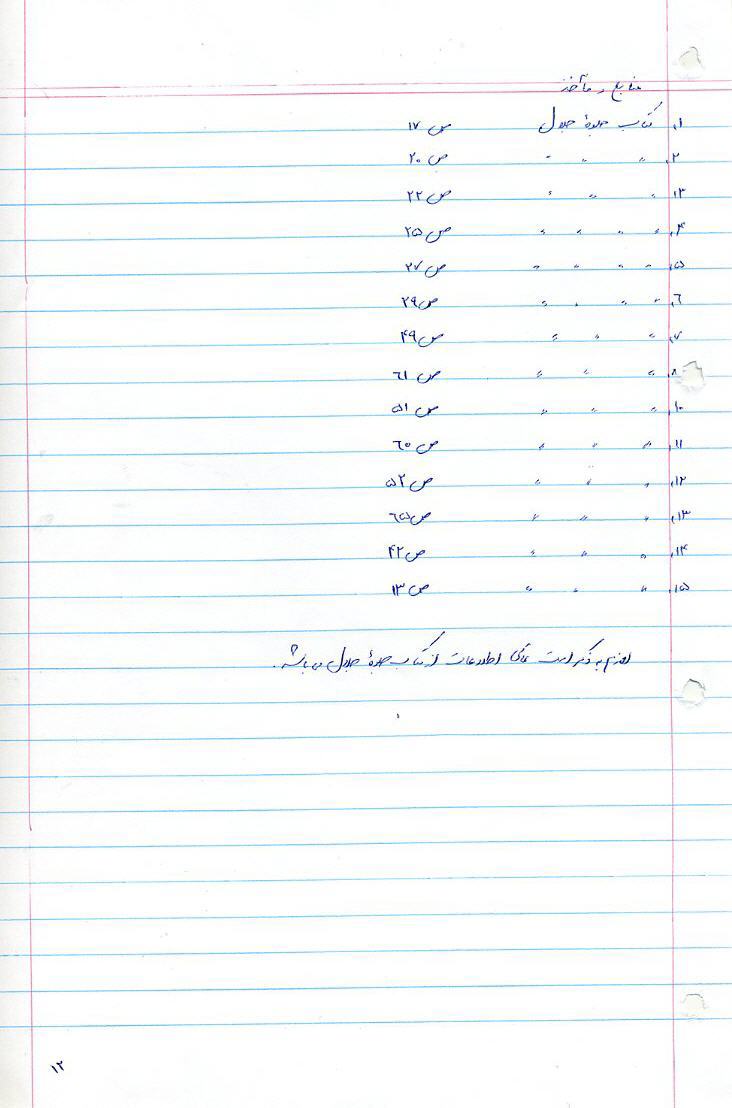 منابع و مآخذ
۱. کتاب جلوهٔ جلال ص ۱۷
۲. " " " ص ۲۰
۳. " " " ص ۲۲
۴. " " " " ص ۲۵
۵. " " " " ص ۲۷
۶. " " " " ص ۲۹
۷. " " " ص ۴۹
۸. " " " ص ۶۱
۱۰. " " " ص ۵۱
۱۱. " " " ص ۶۰
۱۲. " " " ص ۵۲
۱۳. " " " ص ۶۵
۱۴. " " " ص ۴۲
۱۵. " " " ص ۱۳
لازم به ذکر است تمامی اطلاعات از کتاب جلوهٔ جلال می باشد.
۱۲